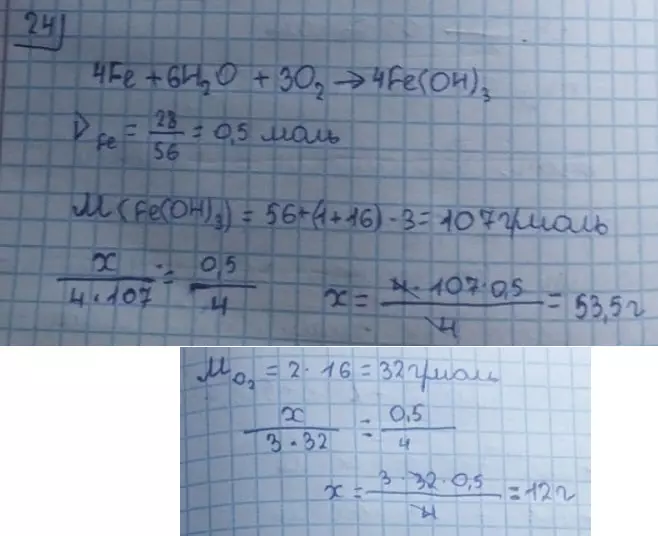 24)
4Fe + 6H₂O + 3O₂ → 4Fe(OH)₃
ν Fe = 28/56 = 0,5 моль
M(Fe(OH)₃) = 56+(1+16)·3 = 107 г/моль
x/(4·107) = 0,5/4 x = (4·107·0,5)/4 = 53,5 г
M O₂ = 2·16 = 32 г/моль
x/(3·32) = 0,5/4
x = (3·32·0,5)/4 = 12 г